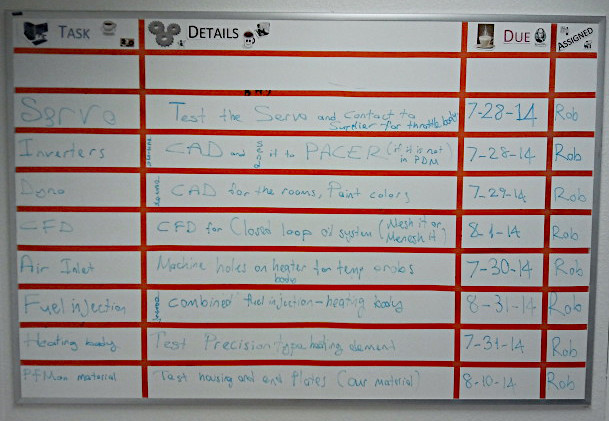 TASK DETAILS DUE ASSIGNED
Servo Test the Servo and Contact to 7-28-14 Rob
Supplier for throttle body
Inverters CAD and send it to PACER (if it is not 7-28-14 Rob
in PDM)
Dyno CAD for the rooms, Paint colors 7-29-14 Rob
CFD CFD for Closed loop oil system (Mesh it or 8-1-14 Rob
Air Inlet Machine holes on heater for temp probes 7-30-14 Rob
body
Fuel injection combined fuel injection-heating body 8-31-14 Rob
Heating body Test Precision type heating element 7-31-14 Rob
material Test housing and end Plates (our material) 8-10-14 Rob